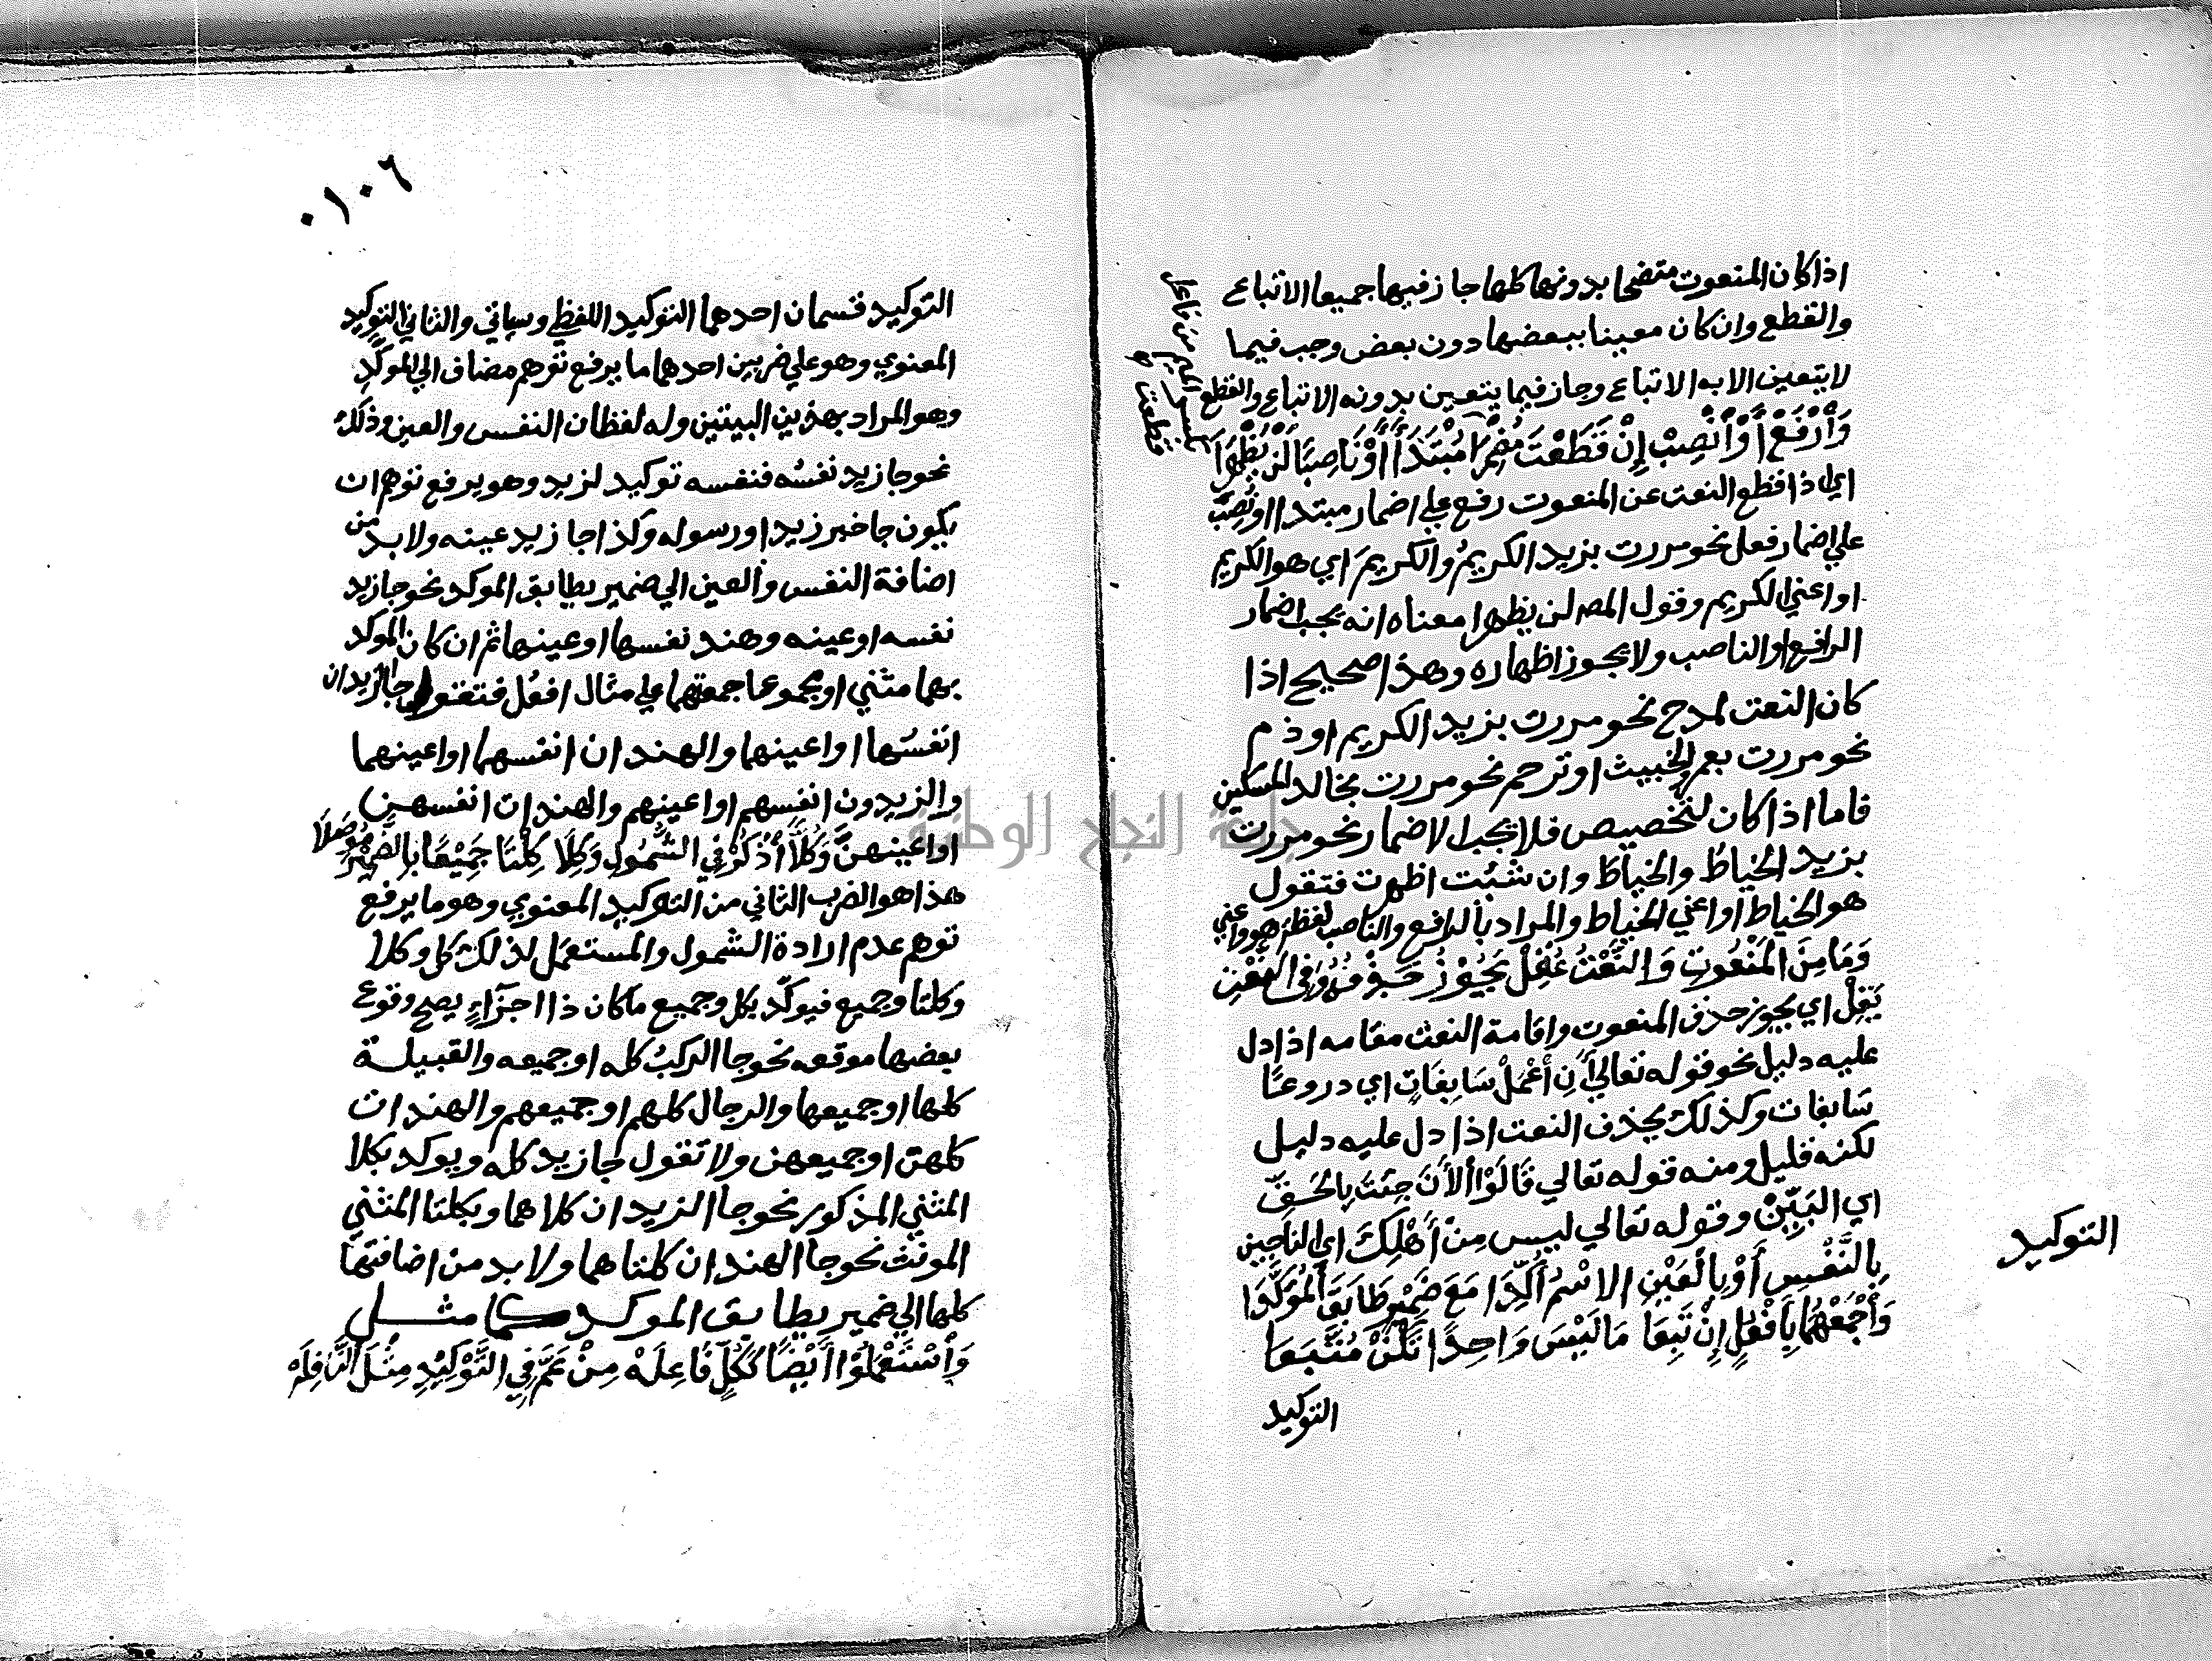 اذا كان المنعوت متضحا بدونها كلها جاز فيها جميعا الاتباع
والقطع وان كان معينا ببعضها دون بعض وجب فيما
لا يتعين الا به الاتباع وجاز فيما يتعين بدونه الاتباع والقطع
وَاْرْفَعْ أَوْاْنْصِبْ إِنْ قَطَعْتَ مُضْمِرَا مُبْتَدَأً اَوْ نَاصِبًا لَنْ يَظْهَرَا
اي اذا قطع النعت عن المنعوت رفع علي اضمار مبتدا او نُصِبَ
علي اضمار فعل نحو مررت بزيد الكريمُ والكريمَ اي هو الكريم
او اعني الكريم وقول المص لن يظهرا معناه انه يجب اضمار
الرافع او الناصب ولا يجوز اظهاره وهذا صحيح اذا
كان النعت لمدح نحو مررت بزيد الكريم او ذم
نحو مررت بعمرو الخبيث او ترحم نحو مررت بخالد المسكين
فاما اذا كان لتخصيص فلا يجب الاضمار نحو مررت
بزيد الخياطُ والخياطَ وان شئت اظهرت فتقول
هو الخياط او اعني الخياط والمراد بالرافع والناصب لفظة هو واعني
وَمَا مِنَ الْمَنْعُوتِ وَالنَّعْتُ عُقِلْ يَجُوْزُ حَذْفُهُ وَفِي النَّعْتِ
يَقِلْ اي يجوز حذف المنعوت واقامة النعت مقامه اذا دل
عليه دليل نحو قوله تعالي أَنِ أْعْمَلْ سَابِغَاتٍ اي دروعًا
سابغات وكذلك يحذف النعت اذا دل عليه دليل
لكنه قليل ومنه قوله تعالي قَالُوْا اْلأنَ جِئتَ بِالْحَقِّ
اي البَيِّنْ وقوله تعالي ليس مِنْ أَهْلِكَ اي الناجين
بِالنَّفْسِ أَوْ بِالْعَيْنِ الاسْمُ أُكِّدَا مَعَ ضَمِيْرٍ طَابَقَ الْمُؤَكَّدَا
وَاْجْمَعْهُمَا بِأَفْعُلٍ إِنْ تَبِعَا مَا لَيْسَ وَاحِدًا تَكُنْ مُتَّبِعَا
التوكيد
التوكيد
٠١٠٦
التوكيد قسمان احدهما التوكيد اللفظي وسياتي والثاني التوكيد
المعنوي وهو علي ضربين احدهما ما يرفع توهم مضاف الي الموكَّدِ
وهو المراد بهذين البيتين وله لفظان النفس والعين وذلك
نحو جا زيد نفسُه فنفسه توكيد لزيد وهو يرفع توهم ان
يكون جا خبر زيد او رسوله وكذا جا زيد عينه ولا بد من
اضافة النفس والعين الي ضمير يطابق الموكد نحو جا زيد
نفسه او عينه وهند نفسها او عينها ثم ان كان الموكد
بهما مثني او مجموعا جمعتهما علي مثال افعُل فتقول جا الزيدان
انفسُهما او اعينهما والهندان انفسهما او اعينهما
والزيدون انفسهم او اعينهم والهندات انفسهن
او اعينهنَّ وَكُلاًّ اْذْكُرْ فِي الشُّمُولِ وَكِلَا كِلْتَا جَمِيْعًا بِالضَّمِيْرِ مُوْصَلَا
هذا هو الضرب الثاني من التوكيد المعنوي وهو ما يرفع
توهم عدم ارادة الشمول والمستعمل لذلك كل وكلا
وكلتا وجميع فيوكَّد بكل وجميع ما كان ذا اجزآءٍ يصح وقوع
بعضها موقعه نحو جا الركبُ كله او جميعه والقبيلة
كلها او جميعها والرجال كلهم او جميعهم والهندات
كلهن او جميعهن ولا تقول جا زيد كله ويوكد بكلا
المثني المذكور نحو جا الزيدان كلاهما وبكلتا المثني
المونث نحو جا الهندان كلتاهما ولا بد من اضافتها
كلها الي ضمير يطابق الموكد كما مثل
وَاْسْتَعْمَلُوْا أَيْضًا كَكُلٍّ فَاعِلَهْ مِنْ عَمَّ فِي التَّوْكِيْدِ مِثْلَ النَّافِلَهْ